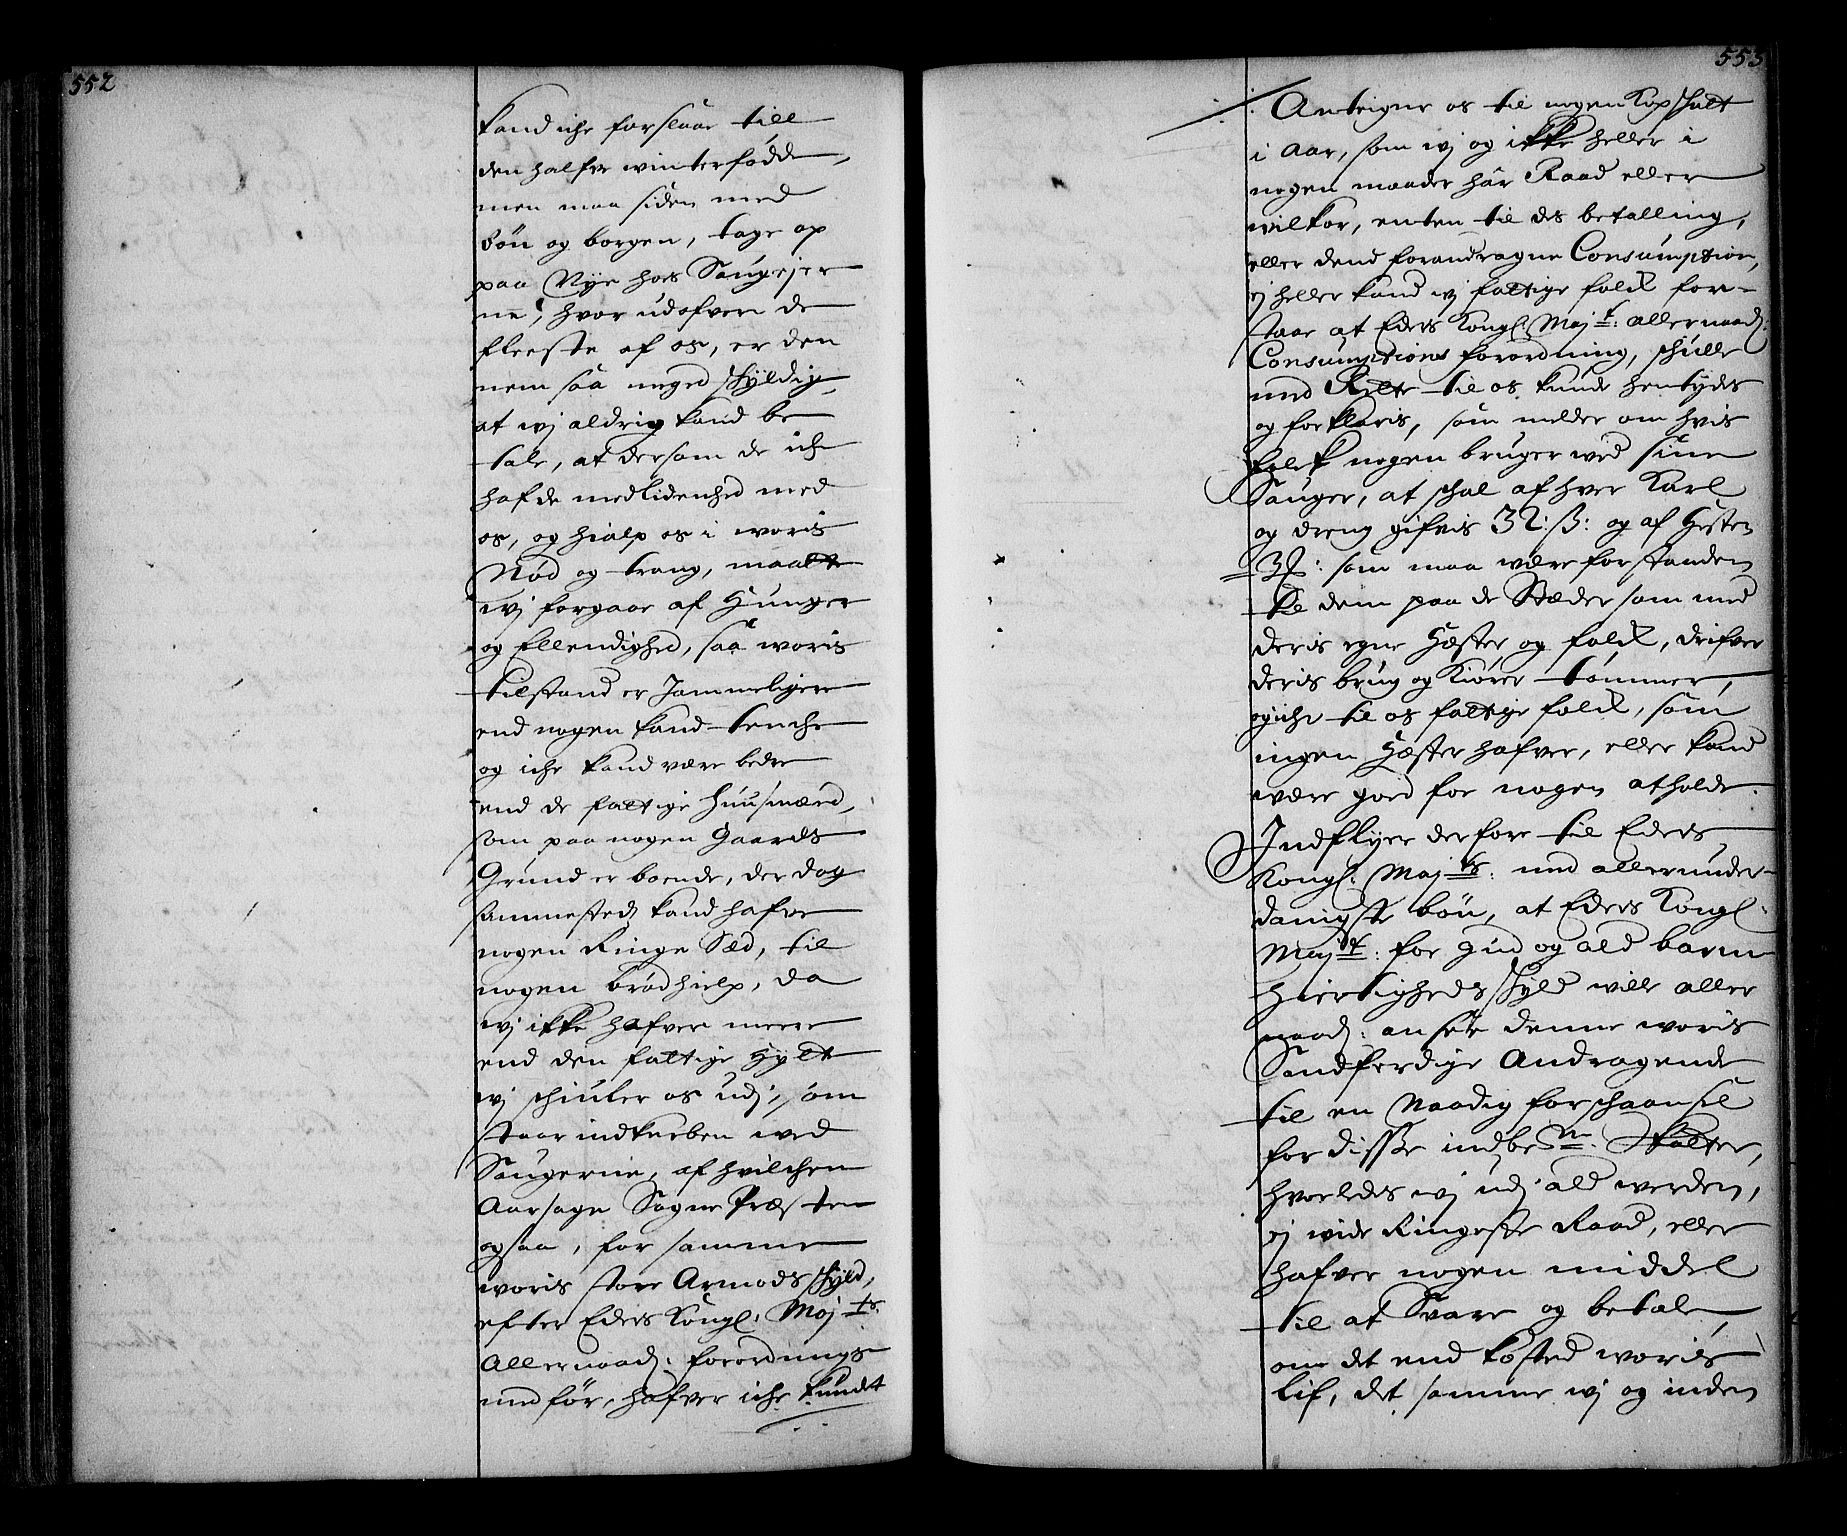 552
kand iche forslaae till
den halfve winterfødde,
men maa siden med
bøn og borgen, tage op
paa Nye hos Saugejer
ne, hvor udofver de
fleeste af os, er den
nem saa meged skyldig,
at wj aldrig kand be
tale, at dersom de iche
hafde medlidenhed med
os, og hialp os i woris
Nød og trang, maatte
wj forgaae af Hunger
og Ellendighed, saa woris
tilstand er Jammeligere
end nogen kand tenche
og iche kand være bedre
end de fattige Huusmænd,
som paa nogen Gaards
Grund er boende, der dog
sammested kand hafve
nogen Ringe Sæd, til
nogen brødhielp, da
wj ikke hafver meere
end den fattige Hytte
wj schiuler os udj, som
staar indkneben wed
Saugerne, af hvilchen
Aarsage Sogne Præsten
ogsaa, for samme
woris store Armods skyld,
efter Eders Kongl: Maj:ts
Allernaad: forordnings
medfør, hafver iche kundet
553
Anteigne os til nogen Kopskatt
i Aar, som wj og ikke heller i
nogen maader har Raad eller
wilkor, enten til des betalling,
eller dend forandragne Consumption,
ej heller kand wj fattige folck for-
staae at Eders Kongl: Maj:t: allernaad:
Consumptions forordning, schulle
med Rette til os kunde hentydes
og forklaris, som melder om hvis
folck nogen bruger wed sine
Sauger, at schal af hver Karl
og dreng gifvis 32: ß: og af Hesten
som maa være forstanden
til dem paa de Stæder som med
deris egne Hæster og folck, drifver
deris brug og kiører tømmer,
og iche til os fattige folck, som
ingen Hæster hafver, eller kand
være goed for nogen at holde.
Indflyer derfore til Eders
Kongl: Maj:ts: med allerunder-
danigste bøn, at Eders Kongl:
Maj:t: for gud og ald barm
hiertigheds skyld wille aller
naad: ansee denne woris
Sandferdige Andragende
til en Naadig forschaansel
for disse indbe:te Skatter,
hvorledes wj udj ald werden,
ej wide Ringeste Raad, eller
hafver nogen middel
til at Svare og betale,
om det end kosted woris
lif, det samme wj og inden